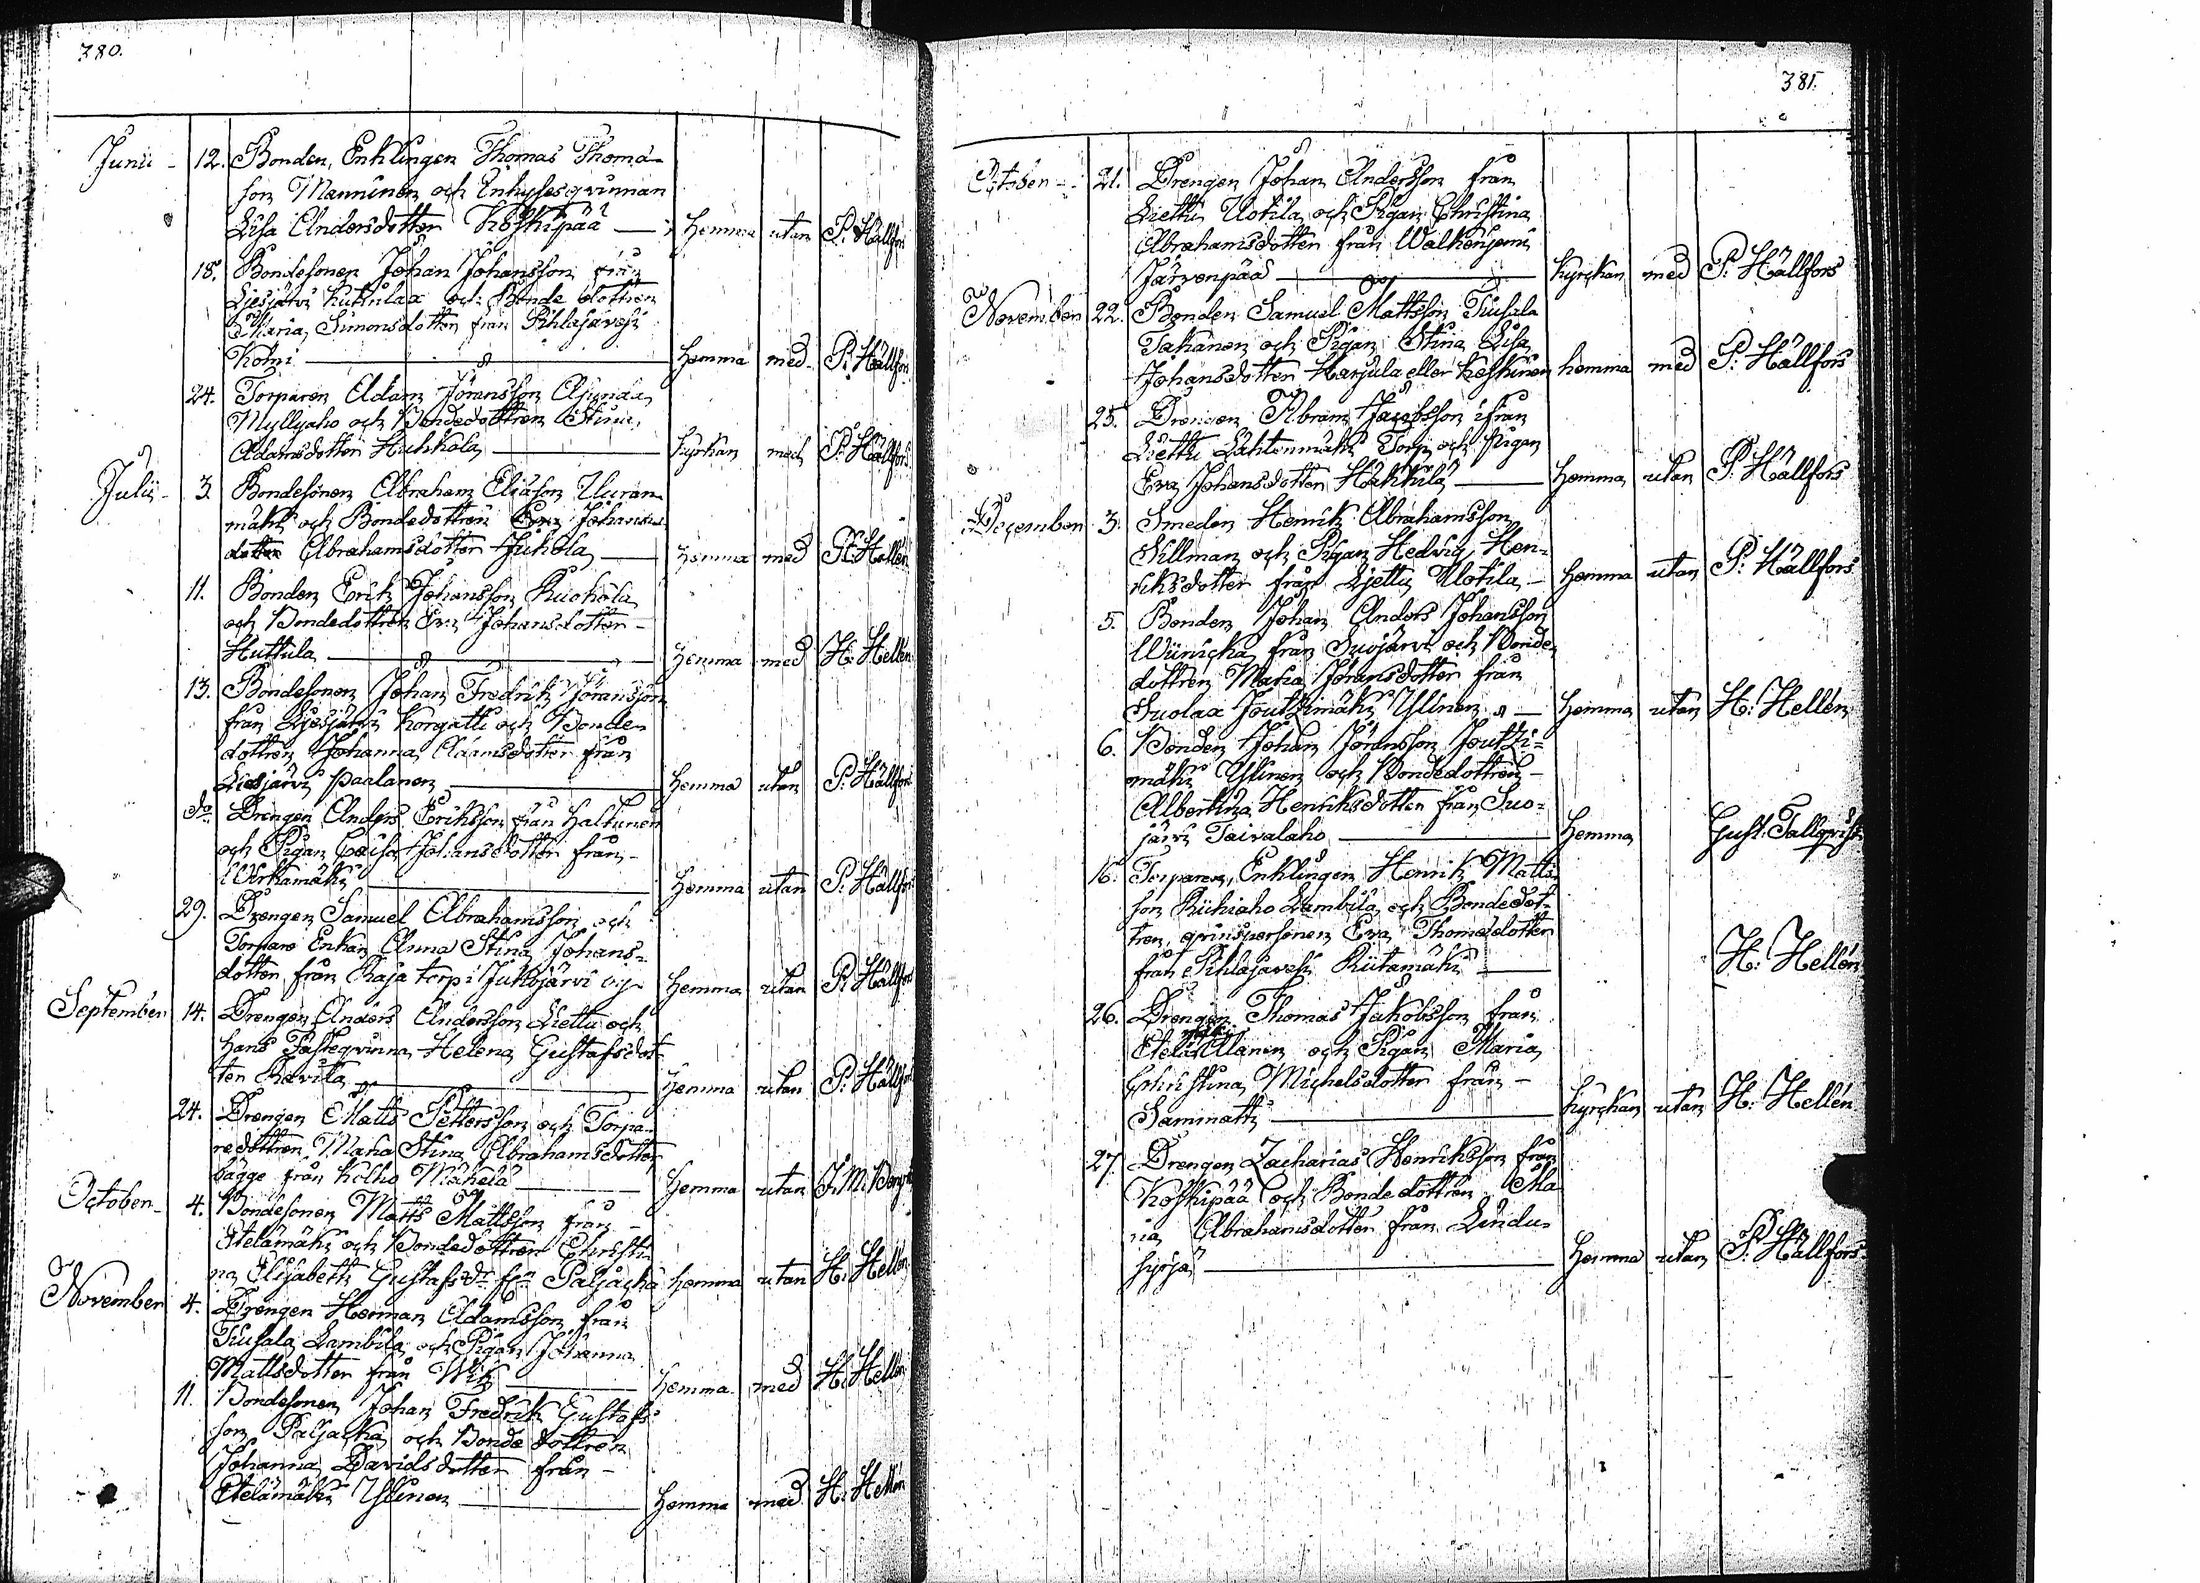 380.
Junii - 12. Bonden, Enklingen Thomas Thoma-
son Manninen och Enhysesqvinnan
Lisa Andersdotter Koskipää — Hemma utan P. Hällfors
18. Bondesonen Johan Johansson från
Liesjärvi och Bonde dottren
Maria Simonsdotter från Pihlajavesi
Koivi — Hemma med P. Hällfors
24. Torparen Adam Jöransson
Myllyaho och Bondedottren Stina
Adamsdotter Huhkola — Kyrkan med P. Hällfors
Julii - 3. Bondesonen Abraham Eliasson
mäki och Bondedottren Eva Johans
dotter Abrahamsdotter Juhola — Hemma med H. Hellén
11. Bonden Erik Johansson Ruokola
och Bondedottren Eva Johansdotter -
Huttula — Hemma med H. Hellén
13. Bondesonen Johan Fredrik Jöransson
från Liesjärvi Korgatti och Bonde-
dottren Johanna Adamsdotter från
Liesjärvi Paalanen — Hemma utan P. Hällfors
do Drengen Anders Eriksson från Haltunen
och Pigan Caisa Johansdotter från -
— Hemma utan P. Hällfors
29. Drengen Samuel Abrahamsson och
Torpare Enkan Anna Stina Johans-
dotter från Raja torp i Jukojärvi — Hemma utan P. Hällfors
September 14. Drengen Anders Andersson Liettu och
hans Fästeqvinna Helena Gustafsdot-
ter Ravila — Hemma utan P. Hällfors
24. Drengen Matts Pettersson och Torpa-
redottren Maria Stina Abrahamsdotter
bägge från Kolho Mäkelä — Hemma utan
October - 4. Bondesonen Matts Mattsson från -
Etelämäki och Bondedottren Christi-
na Elisabeth Gustafsdr frn Paljacka Hemma utan H. Hellén
November 4. Drengen Herman Adamsson från
Tiusala Lambila och Pigan Johanna
Mattsdotter från Wik — Hemma med H. Hellén
11. Bondesonen Johan Fredrik Gustafs-
son Paljacka och Bonde dottren
Johanna Davidsdotter från -
Etelämäki Ylinen — Hemma med H. Hellén
381.
October - 21. Drengen Johan Andersson från
Liettu Uotila och Pigan Christina
Abrahamsdotter från
Järvenpää — Kyrkan med P. Hällfors
November 22. Bonden Samuel Mattsson Tiusala
Takanen och Pigan Stina Lisa
Johansdotter Harjula eller Keskinen hemma med P. Hällfors
25. Drengen Abram Jacobsson ifrån
Liettu Lahtenmäki Torp och Pigan
Eva Johansdotter Häkkilä — Hemma utan P. Hällfors
December 3. Smeden Henrik Abrahamsson
Sillman och Pigan Hedvig Hen-
riksdotter från Liettu Uotila — Hemma utan P. Hällfors
5. Bonden Johan Anders Johansson
Wiinicka från Suojärvi och Bonde
dottren Maria Johansdotter från
Suolax Joutzimäki Ylinen — Hemma utan H. Hellén
6. Bonden Johan Jöransson Joutzi-
mäki Ylinen och Bondedottren -
Albertina Henriksdotter från Suo-
järvi Taivalaho — Hemma Gust. Tallqvist
16. Torparen, Enklingen Henrik Matts-
son Riihiaho Lambila och Bondedot-
tren, qvinspersonen Eva Thomasdotter
från Pihlajavesi Riitamäki — H. Hellén
26. Drengen Thomas Jakobsson från
Etelä Alanen och Pigan Maria
Christina Michelsdotter från -
Sammatti — Kyrckan utan H. Hellén
27. Drengen Zacharias Henriksson från
Koskipää och Bonde dottren Ma-
ria Abrahamsdotter från Lindu-
syrjä — Hemma utan P. Hällfors